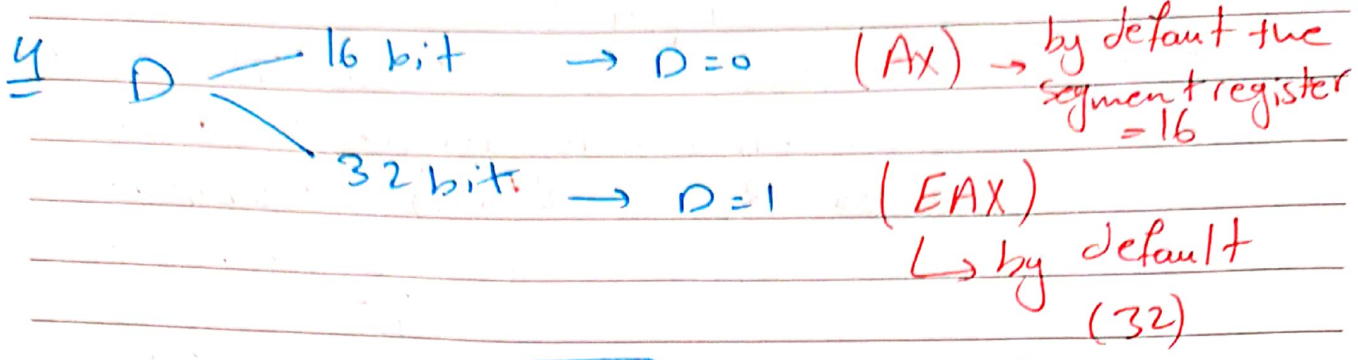 4 D 16 bit → D=0 (AX) → by defaut the
segment register
=16
32 bit. → D=1 (EAX)
↳ by default
(32)